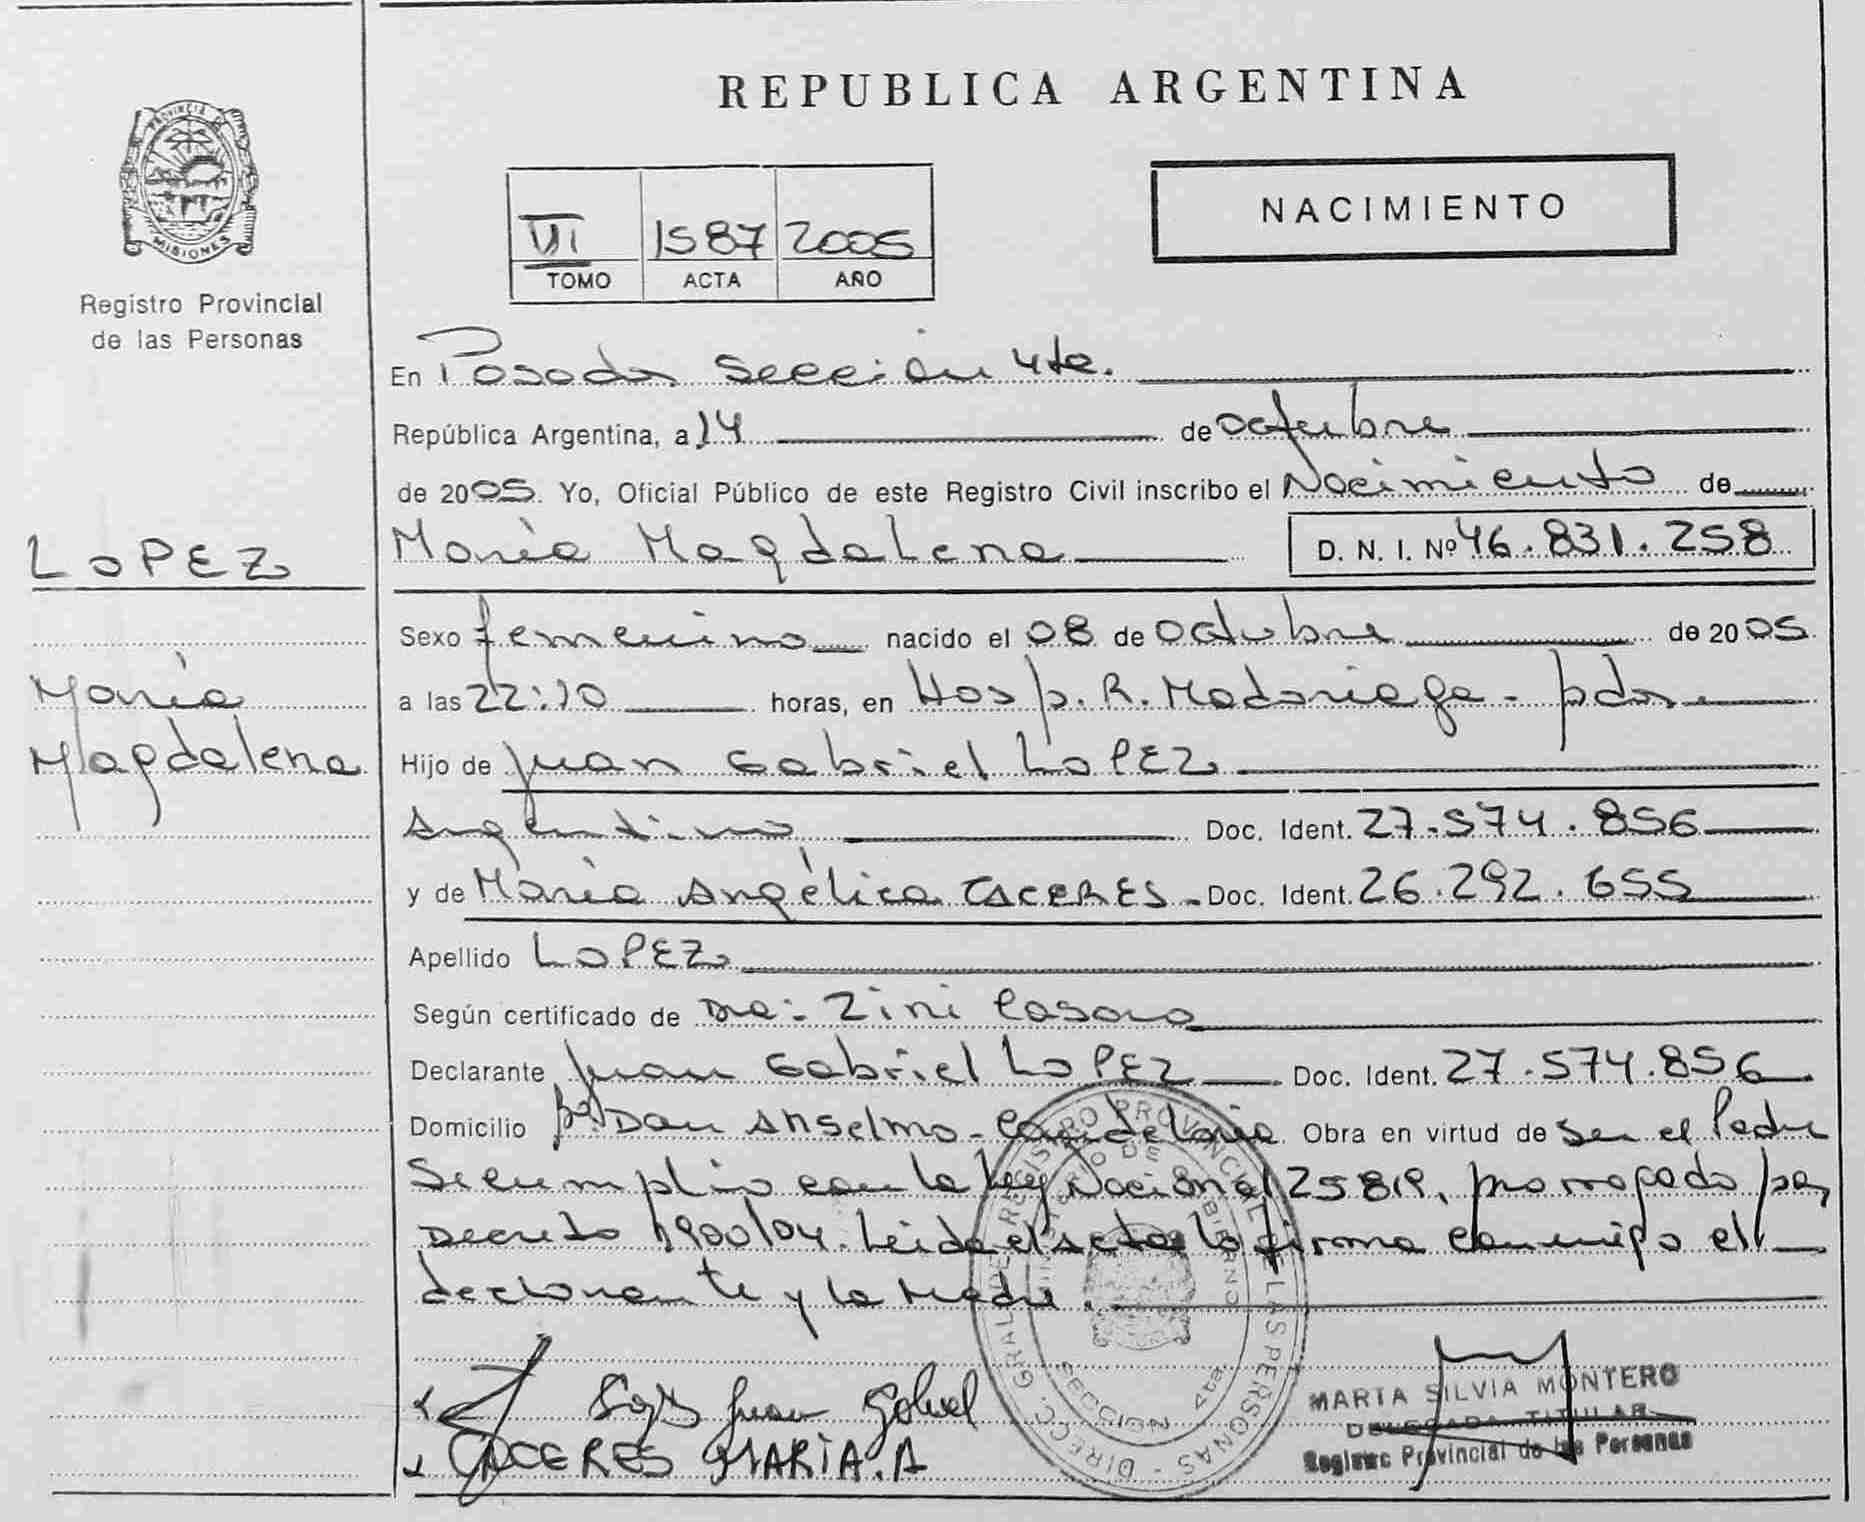 REPUBLICA ARGENTINA
PROVINCIA DE
MISIONES
Registro Provincial
de las Personas
NACIMIENTO
VI 1587 2005
TOMO ACTA AÑO
En Posadas Sección 4ta.
República Argentina, a 14 de octubre
de 2005. Yo, Oficial Público de este Registro Civil inscribo el Nacimiento de
LOPEZ
María Magdalena D. N. I. Nº 46.831.258
Sexo femenino nacido el 08 de octubre de 2005
María
Magdalena
a las 22:10 horas, en Hosp. R. Madariaga - pdas.
Hijo de Juan Gabriel LOPEZ
Argentino Doc. Ident. 27.574.856
y de María Angélica CACERES - Doc. Ident. 26.292.655
Apellido LOPEZ
Según certificado de Dra: Zini
Declarante Juan Gabriel LOPEZ Doc. Ident. 27.574.856
Domicilio Don Anselmo - Candelaria Obra en virtud de ser el Padre
Se cumplio con la Ley Nacional 25819, prorrogado por
Decreto 1900/04. Leida el acta la firma conmigo el
declarante y la Madre.
DIRECC. GRAL. DE REGISTRO PROVINCIAL DE LAS PERSONAS
MINISTERIO DE GOBIERNO
SECCION 4ta.
Juan Gabriel
CACERES MARIA. A
MARTA SILVIA MONTERO
DELEGADA TITULAR
Registro Provincial de las Personas